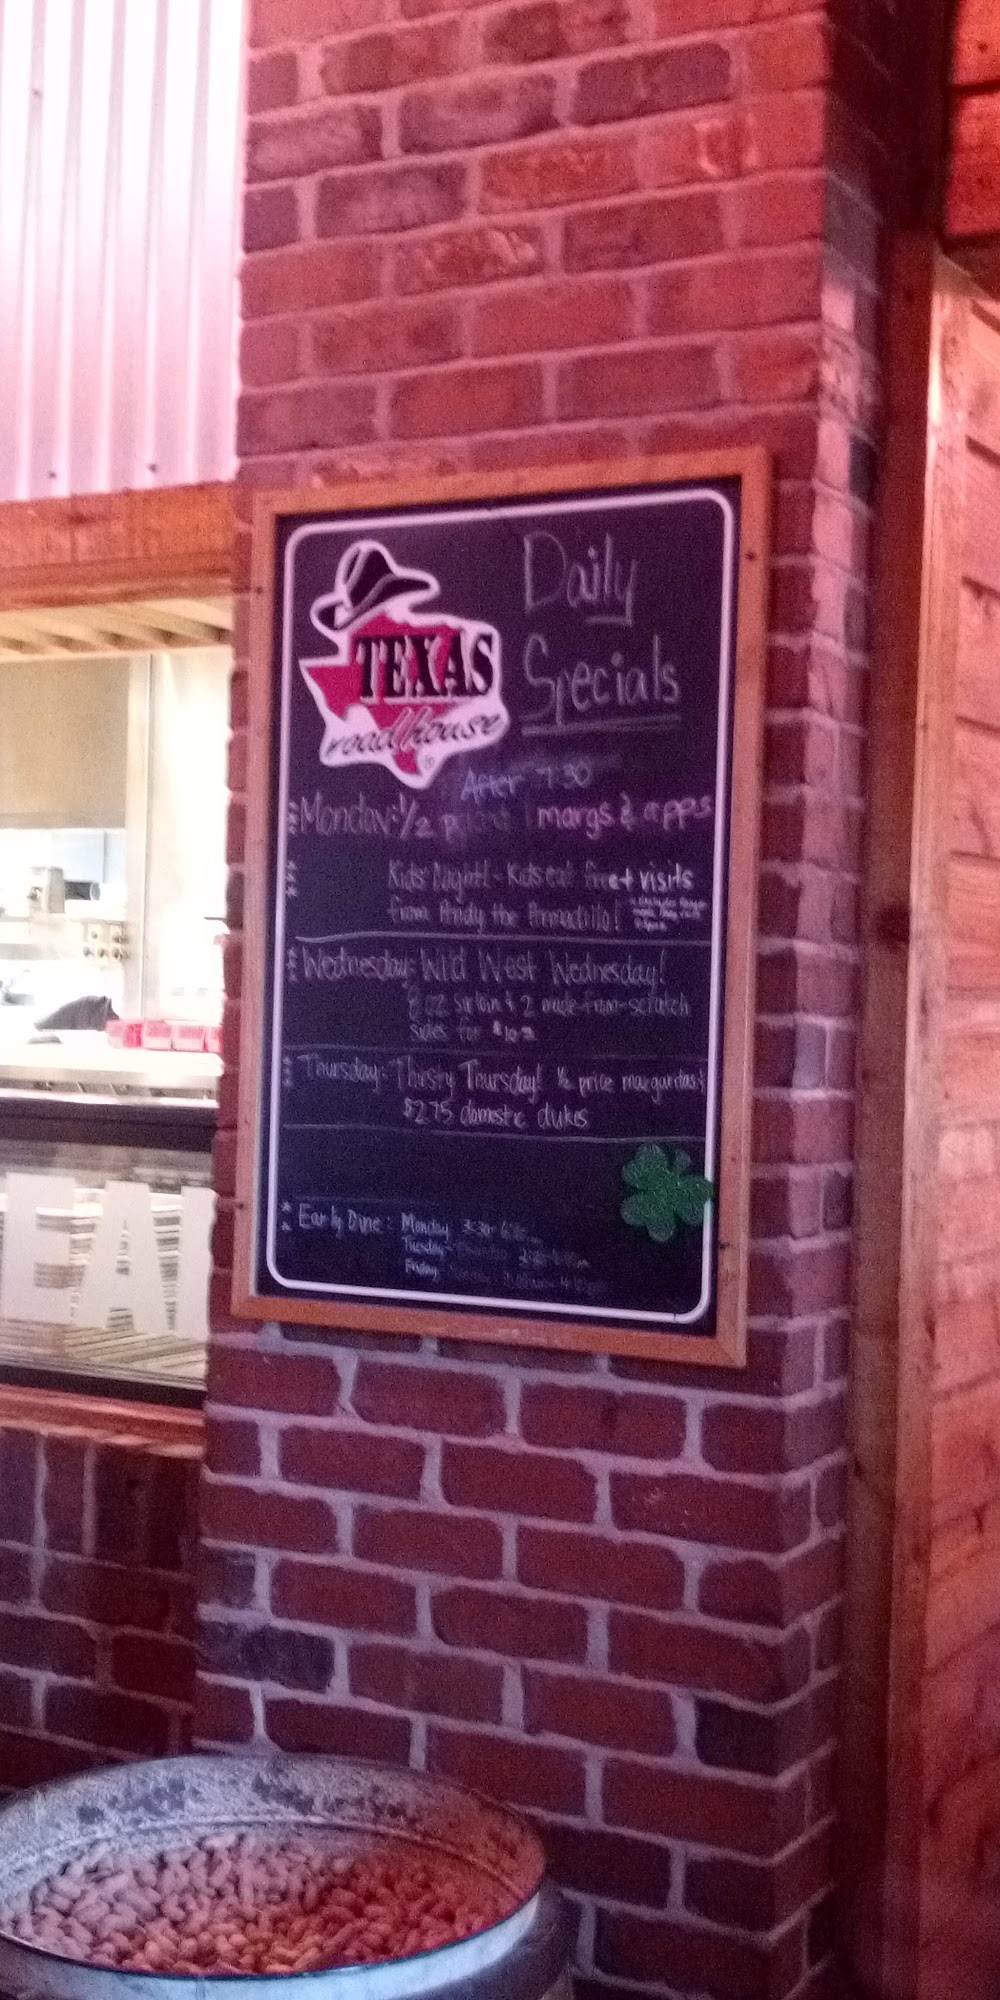 TEXAS
roadhouse
Daily
Specials
After 7:30
Monday: 1/2 margs & apps
Kids' Night! - Kids eat free + visits
from Andy the Armadillo!
Wednesday: Wild West Wednesday!
oz sirloin & 2 made-from-scratch
sides for
Thursday: Thirsty Thursday! 1/2 price margaritas &
$2.75 domestic
Early Dine: Monday
Tuesday
Friday
EA